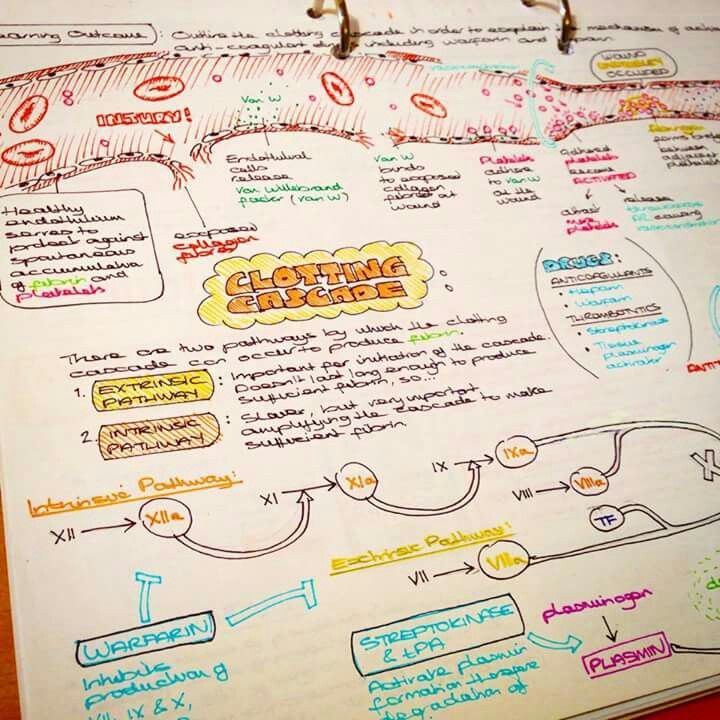 Learning Outcome : Outline the clotting cascade in order to explain the mechanism of action
anti-coagulant drugs including warfarin and heparin.
WOUND
OCCURED
INJURY!
Van W
Endothelial
cells
release
Van Willebrand
factor (van W)
Van W
binds
to exposed
collagen
fibres at
wound
Platelets
adhere
to van W
at the
wound
Adhered
platelets
become
ACTIVATED
attract
more
platelets
release
causing
vasoconstriction
Fibrinogen
forms links
between
adjacent
platelets
Healthy
endothelium
serves to
protect against
spontaneous
accumulation
of fibrin and
platelets
exposed
collagen
fibres
CLOTTING
CASCADE
DRUGS:
ANTICOAGULANTS
• Heparin
• Warfarin
THROMBOLYTICS
• Streptokinase
• Tissue
plasminogen
activator
There are two pathways by which the clotting
cascade can occur to produce fibrin.
1. EXTRINSIC PATHWAY : Important for initiation of the cascade.
Doesn't last long enough to produce
sufficient fibrin, so...
2. INTRINSIC PATHWAY : Slower, but very important
amplifying the cascade to make
sufficient fibrin.
Intrinsic Pathway:
XII
XIIa
XI
XIa
IX
IXa
VIII
VIIIa
X
TF
Extrinsic Pathway:
VII
VIIa
WARFARIN
Inhibits
production of
VII, IX & X,
STREPTOKINASE
& tPA
Activate plasmin
formation therefore
degradation of
plasminogen
PLASMIN